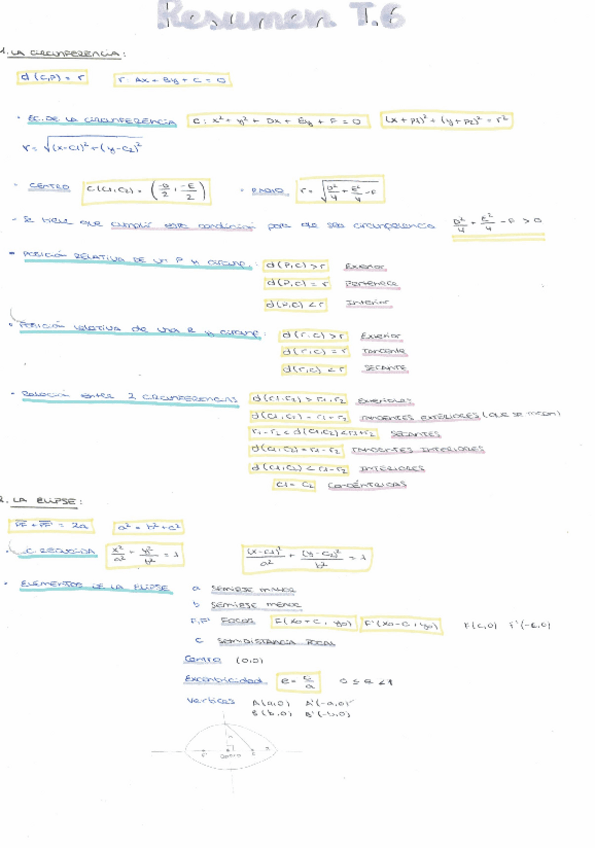 Resumen T.6
1. LA CIRCUNFERENCIA:
d(C,P) = r    r: Ax + By + C = 0
· EC. DE LA CIRCUNFERENCIA  C: x² + y² + Dx + Ey + F = 0    (x + P1)² + (y + P2)² = r²
r = √(x-C1)² + (y-C2)²
· CENTRO  C(C1,C2) = (-D/2, -E/2)    · RADIO  r = √D²/4 + E²/4 - F
- Se tiene que cumplir esta condición para que sea circunferencia  D²/4 + E²/4 - F > 0
- POSICIÓN RELATIVA DE UN P y CIRCUNF.:  d(P,C) > r  Exterior
d(P,C) = r  Pertenece
d(P,C) < r  Interior
· POSICIÓN relativa de una R y CIRCUNF:  d(r,C) > r  Exterior
d(r,C) = r  Tangente
d(r,C) < r  SECANTE
- Relación entre 2 CIRCUNFERENCIAS  d(r1-r2) > r1+r2  EXTERIORES
d(C1,C2) = r1+r2  TANGENTES EXTERIORES (que se tocan)
r1-r2 < d(C1,C2) < r1+r2  SECANTES
d(C1,C2) = r1-r2  TANGENTES INTERIORES
d(C1,C2) < r1-r2  INTERIORES
C1 = C2  CONCÉNTRICAS
2. LA ELIPSE:
PF + PF' = 2a    a² = b² + c²
· EC. REDUCIDA  x²/a² + y²/b² = 1    (x-C1)²/a² + (y-C2)²/b² = 1
· ELEMENTOS DE LA ELIPSE  a  SEMIEJE MAYOR
b  SEMIEJE MENOR
F,F'  FOCOS  F(x0+C, y0)  F'(x0-C, y0)  F(c,0)  F'(-c,0)
C  SEMIDISTANCIA FOCAL
Centro  (0,0)
Excentricidad  e = c/a  0 ≤ e < 1
Vértices  A(a,0)  A'(-a,0)
B(b,0)  B'(-b,0)
F'  Centro  F